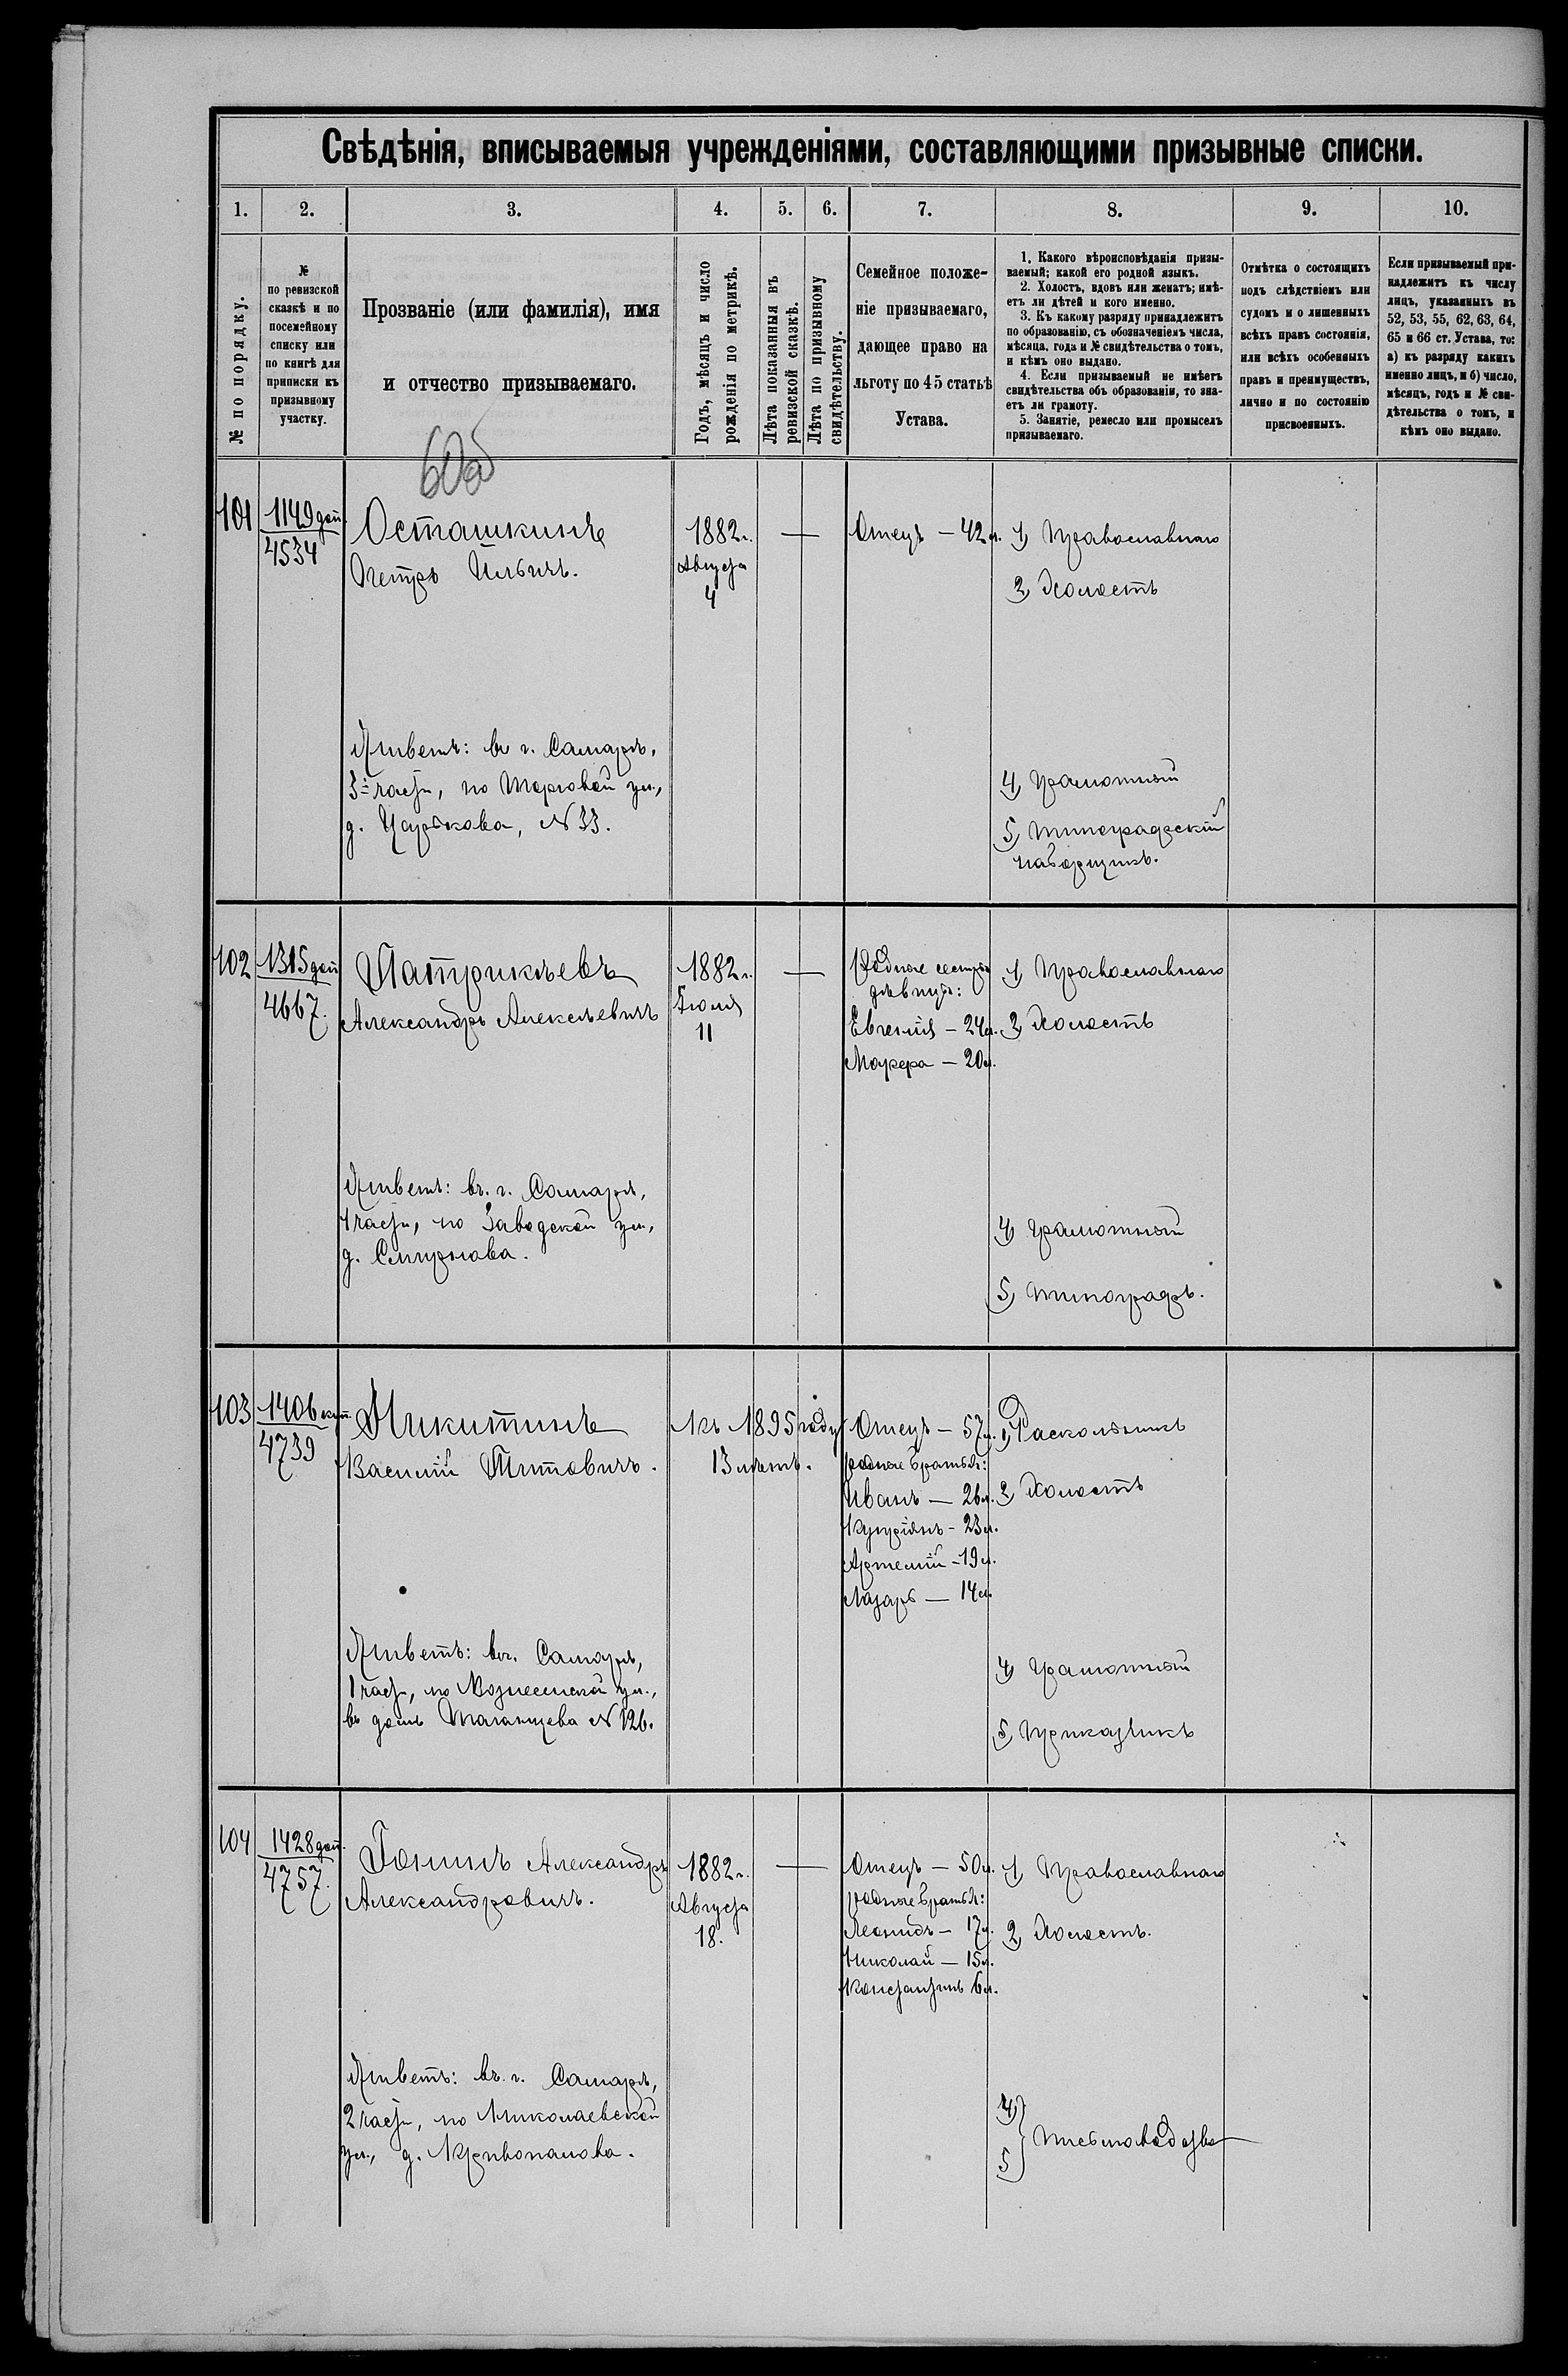 Свѣдѣнія, вписываемыя учрежденіями, составляющими призывные списки.
1. 2. 3. 4. 5. 6. 7. 8. 9. 10.
№ по порядку.
№
по ревизской
сказкѣ и по
посемейному
списку или
по книгѣ для
приписки къ
призывному
участку.
Прозваніе (или фамилія), имя
и отчество призываемаго.
Годъ, мѣсяцъ и число
рожденія по метрикѣ.
Лѣта показанныя въ
ревизской сказкѣ.
Лѣта по призывному
свидѣтельству.
Семейное положе-
ніе призываемаго,
дающее право на
льготу по 45 статьѣ
Устава.
1. Какого вѣроисповѣданія призы-
ваемый; какой его родной языкъ.
2. Холостъ, вдовъ или женатъ; имѣ-
етъ ли дѣтей и кого именно.
3. Къ какому разряду принадлежитъ
по образованію, съ обозначеніемъ числа,
мѣсяца, года и № свидѣтельства о томъ,
и кѣмъ оно выдано.
4. Если призываемый не имѣетъ
свидѣтельства объ образованіи, то зна-
етъ ли грамоту.
5. Занятіе, ремесло или промыселъ
призываемаго.
Отмѣтка о состоящихъ
подъ слѣдствіемъ или
судомъ и о лишенныхъ
всѣхъ правъ состоянія,
или всѣхъ особенныхъ
правъ и преимуществъ,
лично и по состоянію
присвоенныхъ.
Если призываемый при-
надлежитъ къ числу
лицъ, указанныхъ въ
52, 53, 55, 62, 63, 64,
65 и 66 ст. Устава, то:
а) къ разряду какихъ
именно лицъ, и б) число,
мѣсяцъ, годъ и № сви-
дѣтельства о томъ, и
кѣмъ оно выдано.
101
1149 доп.
4534
Осташкинъ
Петръ Ильичъ.
Живетъ: въ г. Самарѣ,
3й части, по Торговой ул.,
д. Царькова, N 33.
1882 г.
Августа
4
—
Отецъ — 42 л.
1) Православнаго
2) Холостъ
4) Грамотный
5) Типографскій
наборщикъ.
102
1315 доп
4667.
Патрикѣевъ
Александръ Алексѣевичъ
Живетъ: въ г. Самарѣ,
1 части, по Заводской ул.,
д. Смирнова.
1882 г.
Іюля
11
—
Родные сестры
дѣвицы:
Евгенія — 24 л.
Марфа — 20 л.
1) Православнаго
2) Холостъ
4) Грамотный
5) Типографъ.
103
1406
4739
Никитинъ
Василій Титовичъ.
Живетъ: въ г. Самарѣ,
1 части, по Вознесенской ул.,
въ домѣ N 126.
Къ 1895 году
13 лѣтъ.
Отецъ — 57 л.
родные братья:
Иванъ — 26 л.
Купріянъ - 23 л.
Артемій - 19 л.
Лазарь — 14 л.
1) Раскольникъ
2) Холостъ
4) Грамотный
5) Прикащикъ
104
1428 доп.
4757.
Іонинъ Александръ
Александровичъ.
Живетъ: въ г. Самарѣ,
2 части, по Николаевской
ул., д. Кривопалова.
1882 г.
Августа
18.
—
Отецъ — 50 л.
родные братья:
Леонидъ — 17 л.
Николай — 15 л.
Константинъ 6 л.
1) Православнаго
2) Холостъ.
4)
5
Письмоводство